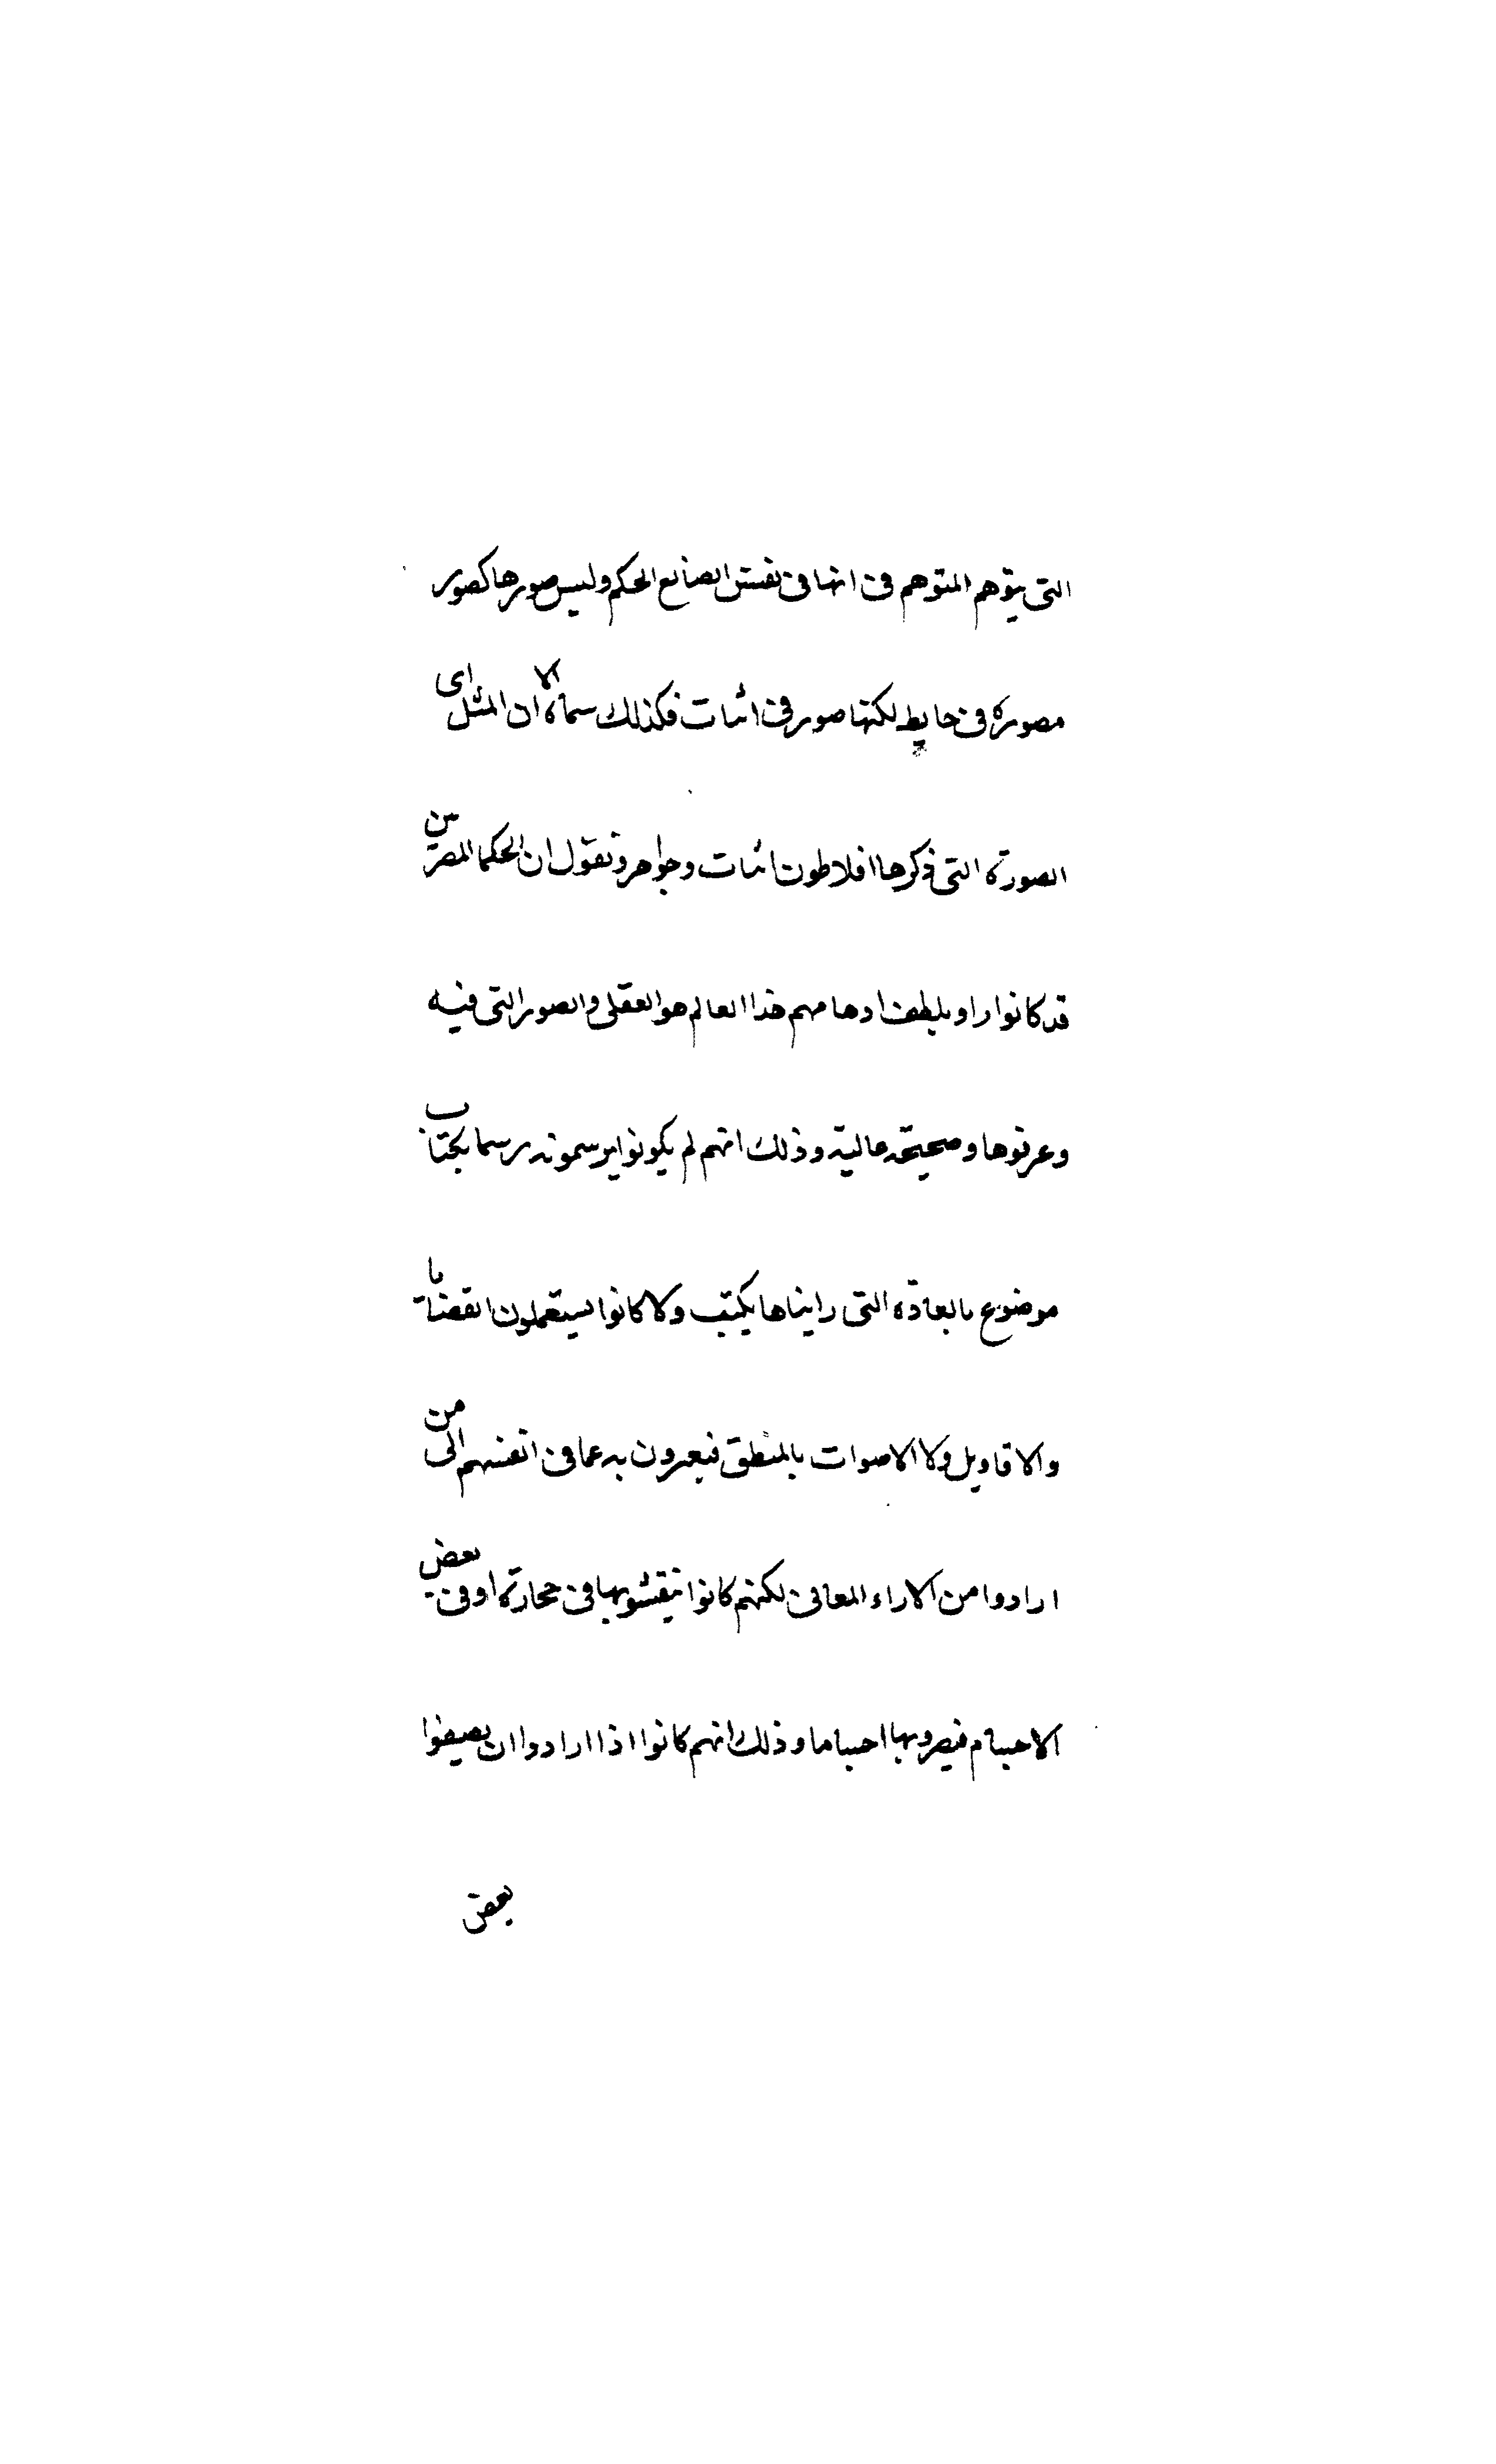 التى يتوهم المتوهم فى انها فى نفس الصانع الحكيم وليس صورها كصور
مصورة فى حايط لكنها صور فى انيات فكذلك سماه الاان المثل اى
الصورة التى ذكرها افلاطون انيات وجواهر ونقول ان الحكما المصريين
قد كانوا راو بلطف اوهامهم هذا العالم هو العقلى والصور التى فيه
وعرفوها وصحيحة عالية وذلك انهم لم يكونوا يرسمونه رسما بكتاب
موضوع بالعادة التى رايناها يكتب ولا كانوا يستعملون القضايا
والاقاويل ولا الاصوات بالمنطق فيعبرون به عما فى انفسهم الى من
ارادوا من الاراء المعانى لكنهم كانوا ينقشونها فى حجارة او فى بعض
الاجسام فيصيرونها اجساما وذلك انهم كانوا اذا ارادوا ان يصيفوا
بعض